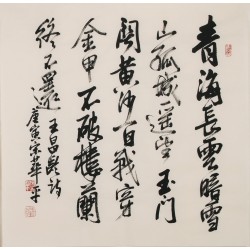 青海長雲暗雪
山孤城遥望玉门
関黄沙百戰穿
金甲不破樓蘭
终不還
王昌龄詩
庚寅宗華